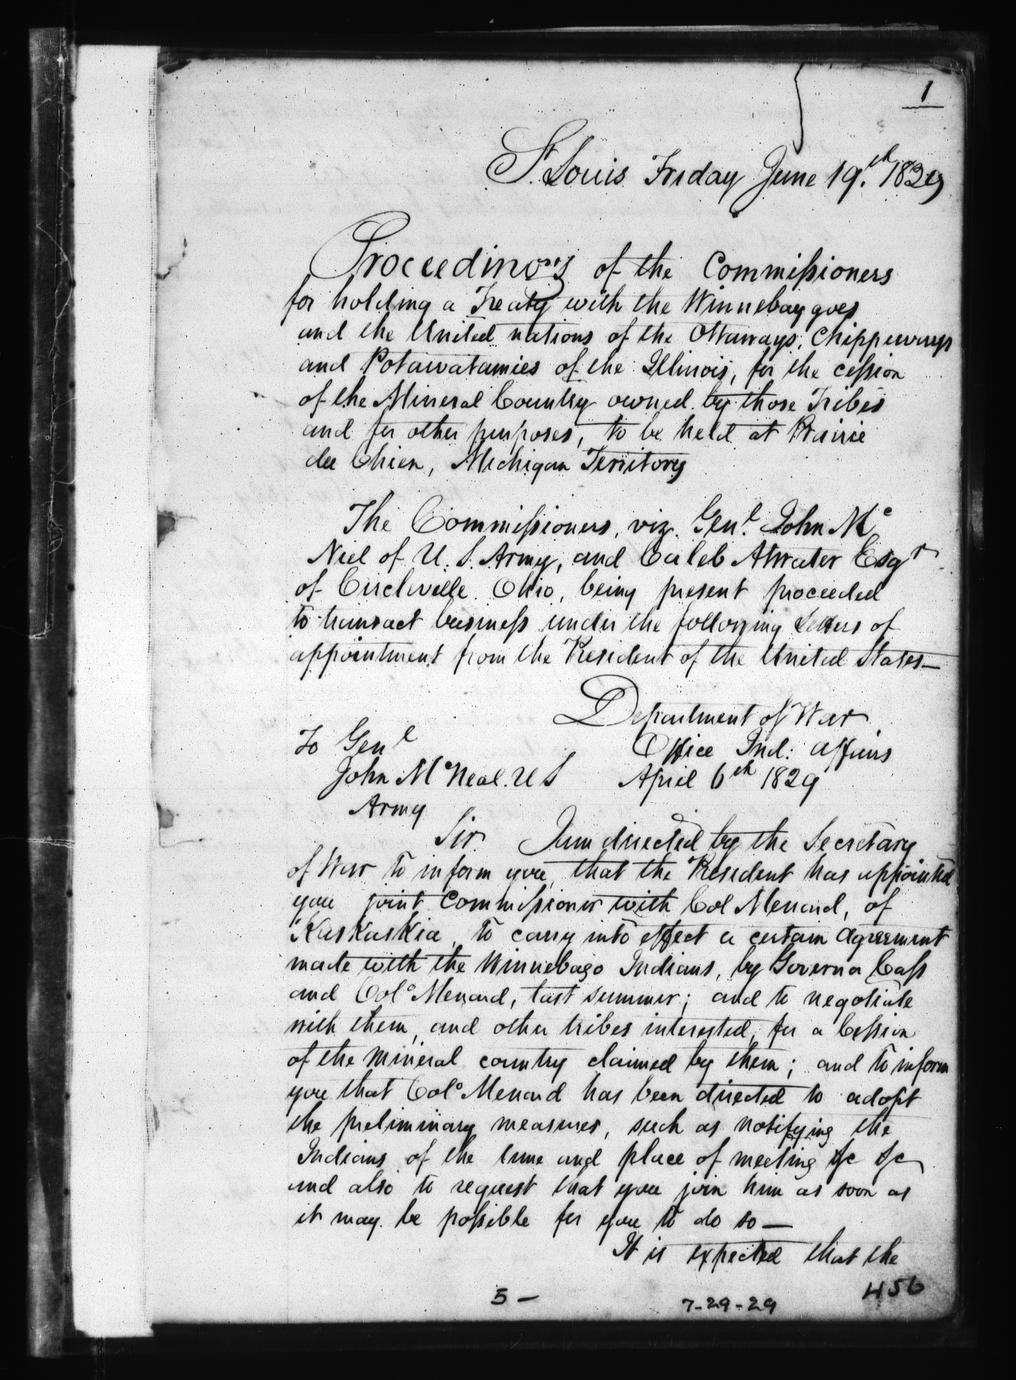 1
St. Louis Friday June 19th. 1829
Proceedings of the Commissioners
for holding a Treaty with the Winnebaygoes
and the United nations of the Ottaways, Chippeways
and Potawatamies of the Illinois, for the cession
of the Mineral Country owned by those Tribes
and for other purposes, to be held at Prairie
du Chien, Michigan Territory
The Commissioners, viz. Genl. John Mc
Niel of U. S. Army, and Caleb Atwater Esqr
of Circleville Ohio, being present proceeded
to transact business under the following Letters of
appointment from the President of the United States—
Department of War
To Genl
Office Ind: affairs
John McNeal. U S
April 6th 1829
Army
Sir I am directed by the Secretary
of War to inform you, that the President has appointed
you joint Commissioner with Col Menard, of
Kaskaskia, to carry into effect a certain agreement
made with the Winnebago Indians, by Governor Cass
and Colo Menard, last summer; and to negotiate
with them, and other tribes interested, for a Cession
of the mineral country claimed by them; and to inform
you that Colo Menard has been directed to adopt
the preliminary measures, such as notifying the
Indians of the time and place of meeting &c &c
and also to request that you join him as soon as
it may be possible for you to do so —
It is expected that the
456
5 —
7-29-29